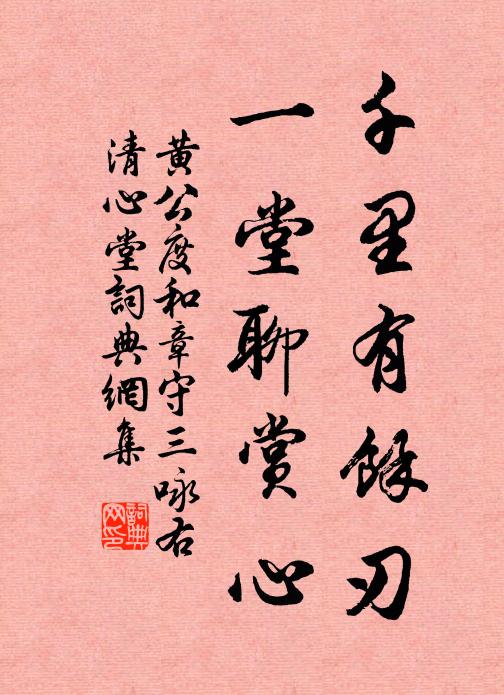 千里有餘刃
一堂聊賞心
黄公度和章守三咏右
清心堂詞典網集
詞典网印